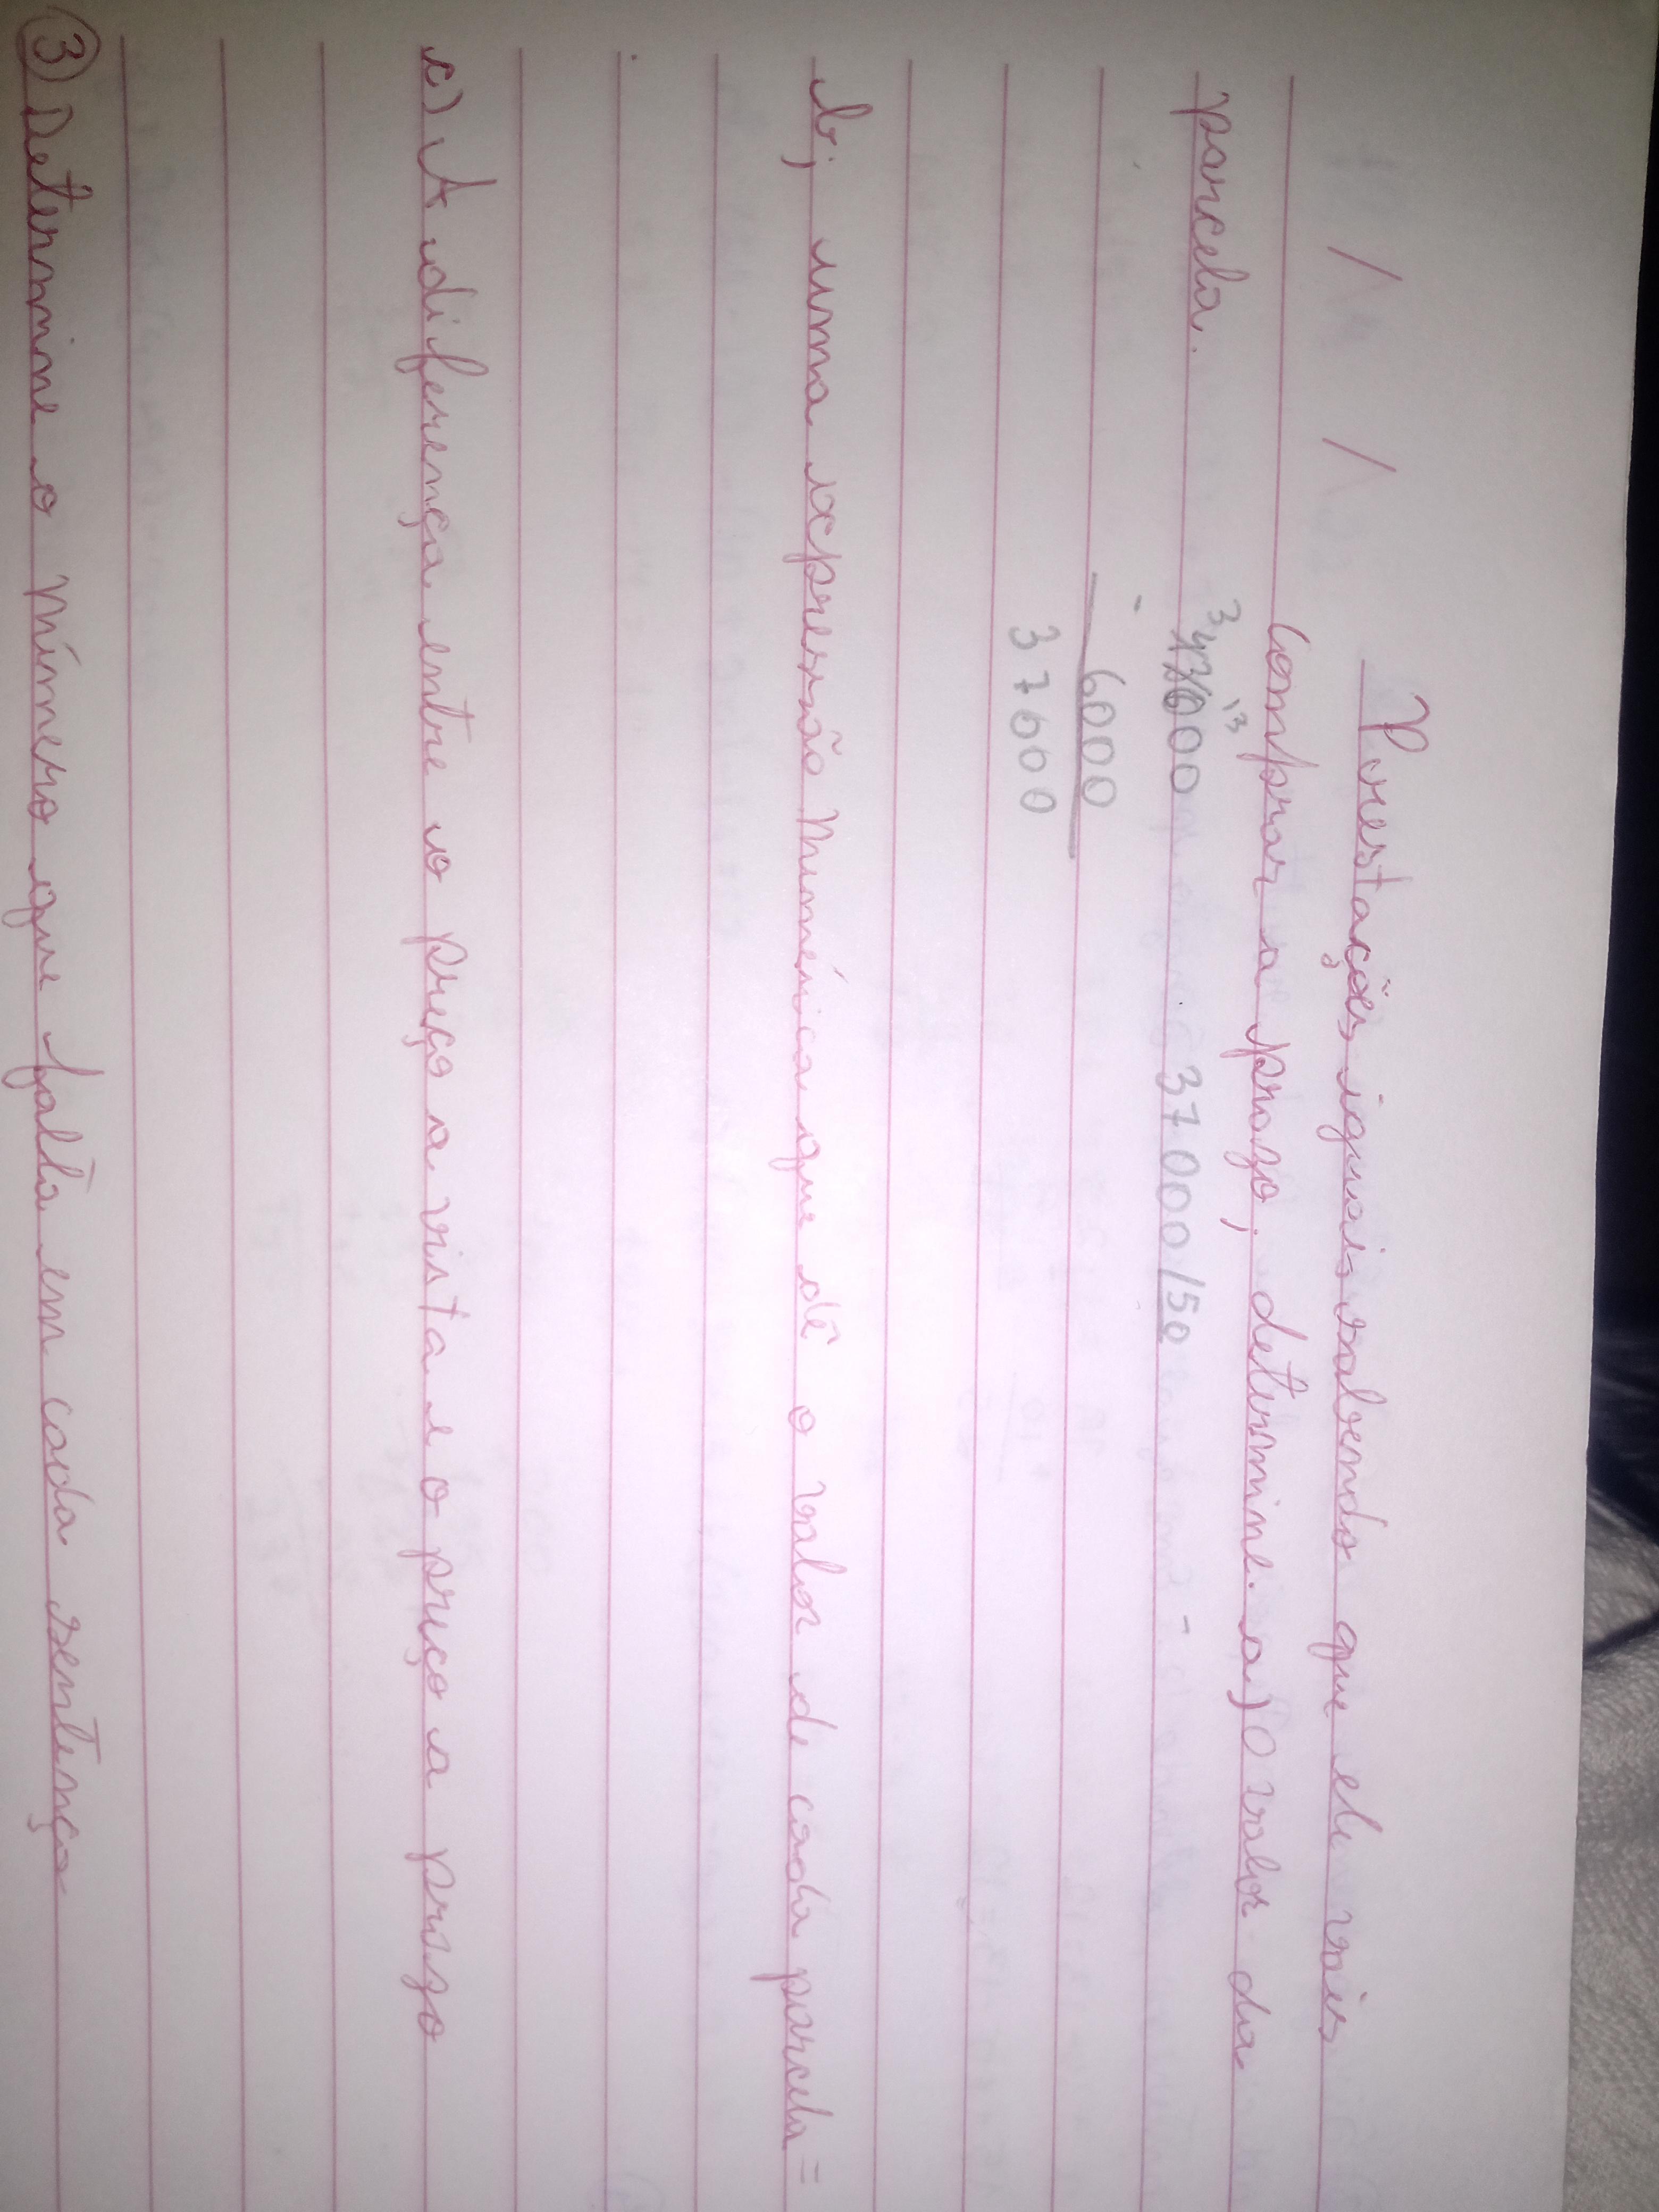 / /
Prestações iguais sabendo que ele vais
comprar a prazo, determine. a) O valor da
parcela.
3 13
43000 37000/50 -
- 6000
37000
b; uma expressão numérica que dê o valor de cada parcela =
c) A diferença entre o preço a vista e o preço a prazo
3) Determine o número que falta em cada sentença